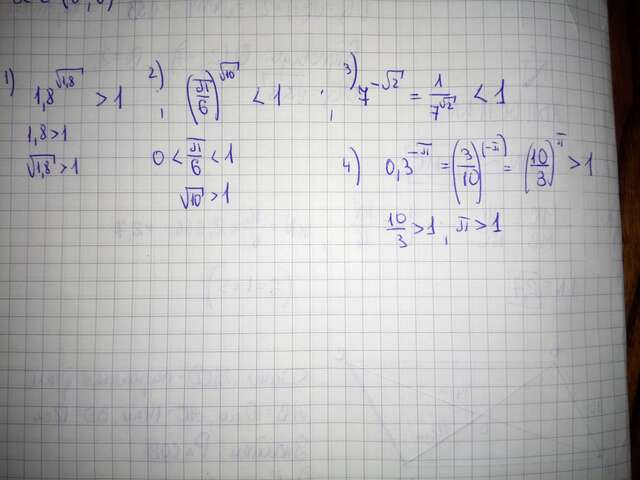 1) 1,8^√1,8 > 1
1,8 > 1
√1,8 > 1
2) (π/6)^√10 < 1
0 < π/6 < 1
√10 > 1
3) 7^-√2 = 1/7^√2 < 1
4) 0,3^-π = (3/10)^(-π) = (10/3)^π > 1
10/3 > 1, π > 1